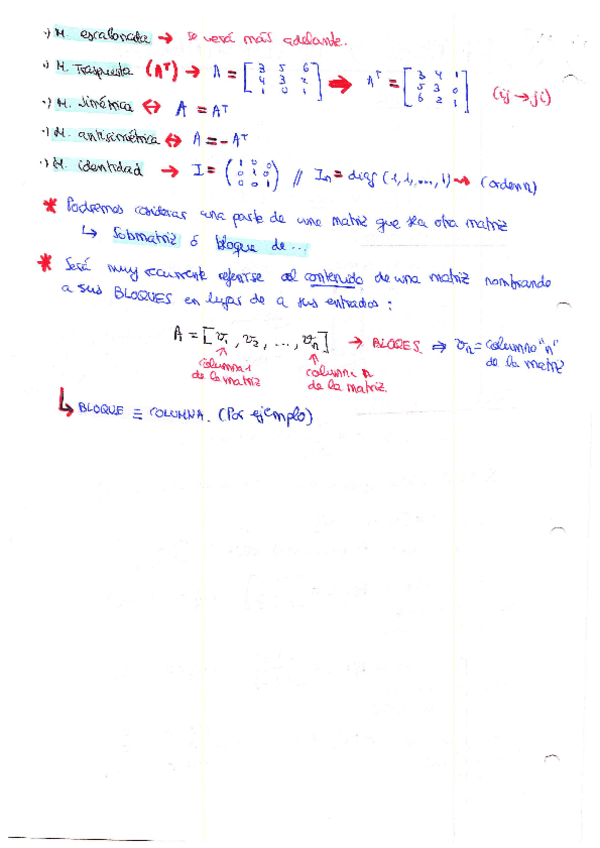 ·) M. escalonada → se verá más adelante.
·) M. Traspuesta (Aᵀ) → A = [3 5 6; 4 3 2; 1 0 1] → Aᵀ = [3 4 1; 5 3 0; 6 2 1] (ij → ji)
·) M. simétrica ⇔ A = Aᵀ
·) M. antisimétrica ⇔ A = -Aᵀ
·) M. identidad → I = (1 0 0; 0 1 0; 0 0 1) // Iₙ = diag (1, 1, ..., 1) → (orden n)
* Podremos considerar una parte de una matriz que sea otra matriz
↳ Submatriz ó bloque de ...
* Será muy recurrente referirse al contenido de una matriz nombrando
a sus BLOQUES en lugar de a sus entradas:
A = [v₁, v₂, ..., vₙ] → BLOQES ⇒ vₙ = columna "n"
de la matriz
columna 1
de la matriz
columna n
de la matriz.
↳ BLOQUE ≡ COLUMNA. (Por ejemplo)